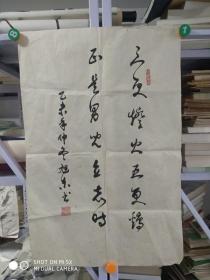 三更燈火五更鷄
正是男兒立志时
乙未年仲夏旭东书
SHOT ON MI 5X
MI DUAL CAMERA